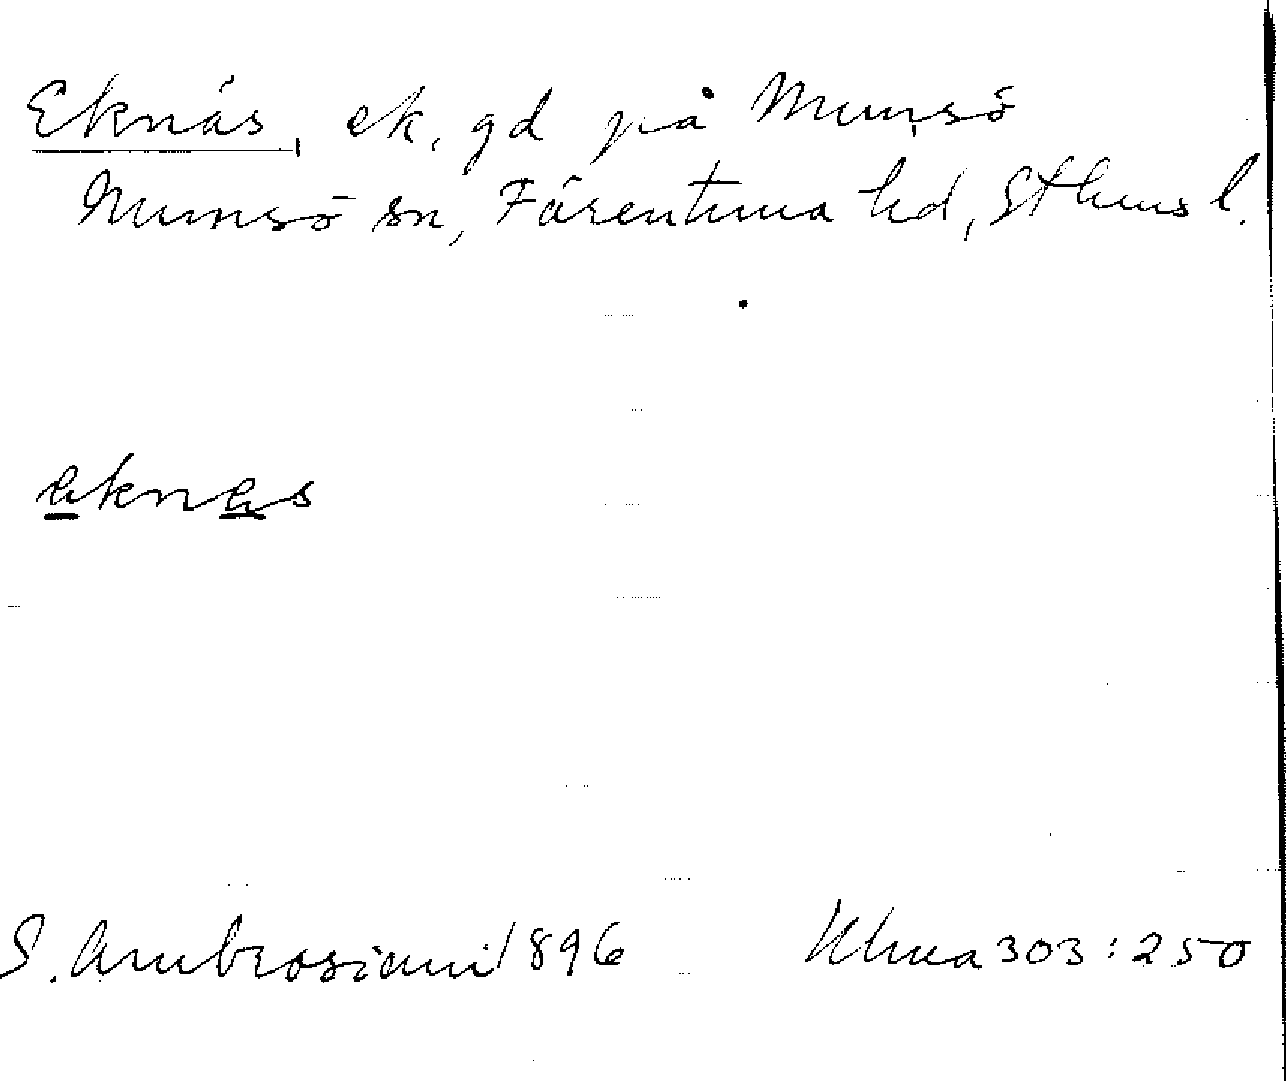 Eknäs, ek. gd på Munsö
Munsö sn, Färentuna hd, Sthms l.
eknes
S. Ambrosiani 1896 Uhma 303:250